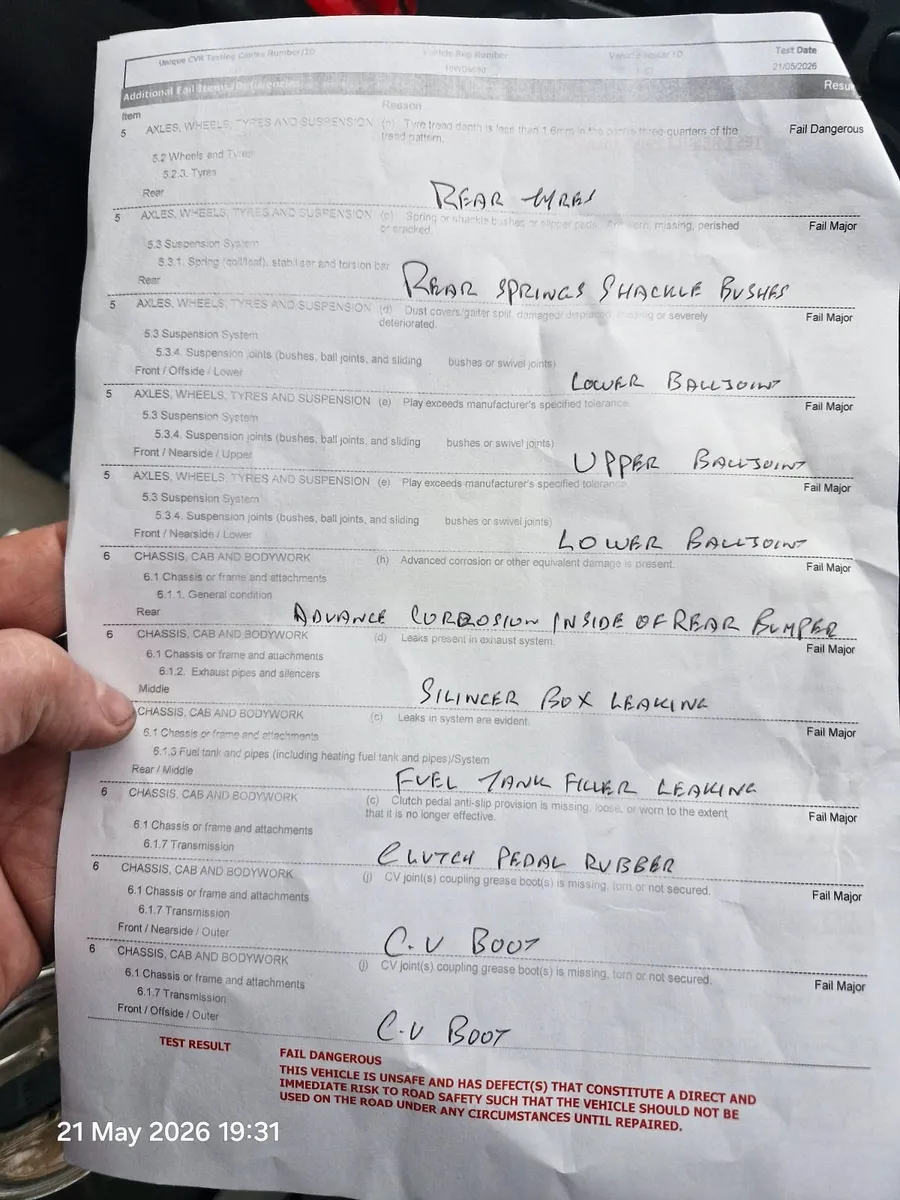 Unique CVR Testing Centre Number/ID Vehicle Reg Number Test Date
21/05/2026
Additional Fail Items/Deficiencies
Item Reason
5 AXLES, WHEELS, TYRES AND SUSPENSION Tyre tread depth is less than 1.6mm in the three-quarters of the tread pattern. Fail Dangerous
5.2 Wheels and Tyres
5.2.3. Tyres
Rear
REAR TYRES
5 AXLES, WHEELS, TYRES AND SUSPENSION (c) Spring or shackle bushes or slipper pads, missing, perished or cracked. Fail Major
5.3 Suspension System
5.3.1. Spring (coil/leaf), stabiliser and torsion bar
Rear
REAR SPRINGS SHACKLE BUSHES
5 AXLES, WHEELS, TYRES AND SUSPENSION (d) Dust covers/gaiter split, damaged/ displaced, or severely deteriorated. Fail Major
5.3 Suspension System
5.3.4. Suspension joints (bushes, ball joints, and sliding bushes or swivel joints)
Front / Offside / Lower
LOWER BALLJOINT
5 AXLES, WHEELS, TYRES AND SUSPENSION (e) Play exceeds manufacturer's specified tolerance. Fail Major
5.3 Suspension System
5.3.4. Suspension joints (bushes, ball joints, and sliding bushes or swivel joints)
Front / Nearside / Upper
UPPER BALLJOINT
5 AXLES, WHEELS, TYRES AND SUSPENSION (e) Play exceeds manufacturer's specified tolerance. Fail Major
5.3 Suspension System
5.3.4. Suspension joints (bushes, ball joints, and sliding bushes or swivel joints)
Front / Nearside / Lower
LOWER BALLJOINT
6 CHASSIS, CAB AND BODYWORK (h) Advanced corrosion or other equivalent damage is present. Fail Major
6.1 Chassis or frame and attachments
6.1.1. General condition
Rear
ADVANCE CORROSION INSIDE OF REAR BUMPER
6 CHASSIS, CAB AND BODYWORK (d) Leaks present in exhaust system. Fail Major
6.1 Chassis or frame and attachments
6.1.2. Exhaust pipes and silencers
Middle
SILINCER BOX LEAKING
CHASSIS, CAB AND BODYWORK (c) Leaks in system are evident. Fail Major
6.1 Chassis or frame and attachments
6.1.3 Fuel tank and pipes (including heating fuel tank and pipes)/System
Rear / Middle
FUEL TANK FILLER LEAKING
6 CHASSIS, CAB AND BODYWORK (c) Clutch pedal anti-slip provision is missing, loose, or worn to the extent that it is no longer effective. Fail Major
6.1 Chassis or frame and attachments
6.1.7 Transmission
CLUTCH PEDAL RUBBER
6 CHASSIS, CAB AND BODYWORK (j) CV joint(s) coupling grease boot(s) is missing, torn or not secured. Fail Major
6.1 Chassis or frame and attachments
6.1.7 Transmission
Front / Nearside / Outer
C.V BOOT
6 CHASSIS, CAB AND BODYWORK (j) CV joint(s) coupling grease boot(s) is missing, torn or not secured. Fail Major
6.1 Chassis or frame and attachments
6.1.7 Transmission
Front / Offside / Outer
C.V BOOT
TEST RESULT FAIL DANGEROUS
THIS VEHICLE IS UNSAFE AND HAS DEFECT(S) THAT CONSTITUTE A DIRECT AND
IMMEDIATE RISK TO ROAD SAFETY SUCH THAT THE VEHICLE SHOULD NOT BE
USED ON THE ROAD UNDER ANY CIRCUMSTANCES UNTIL REPAIRED.
21 May 2026 19:31